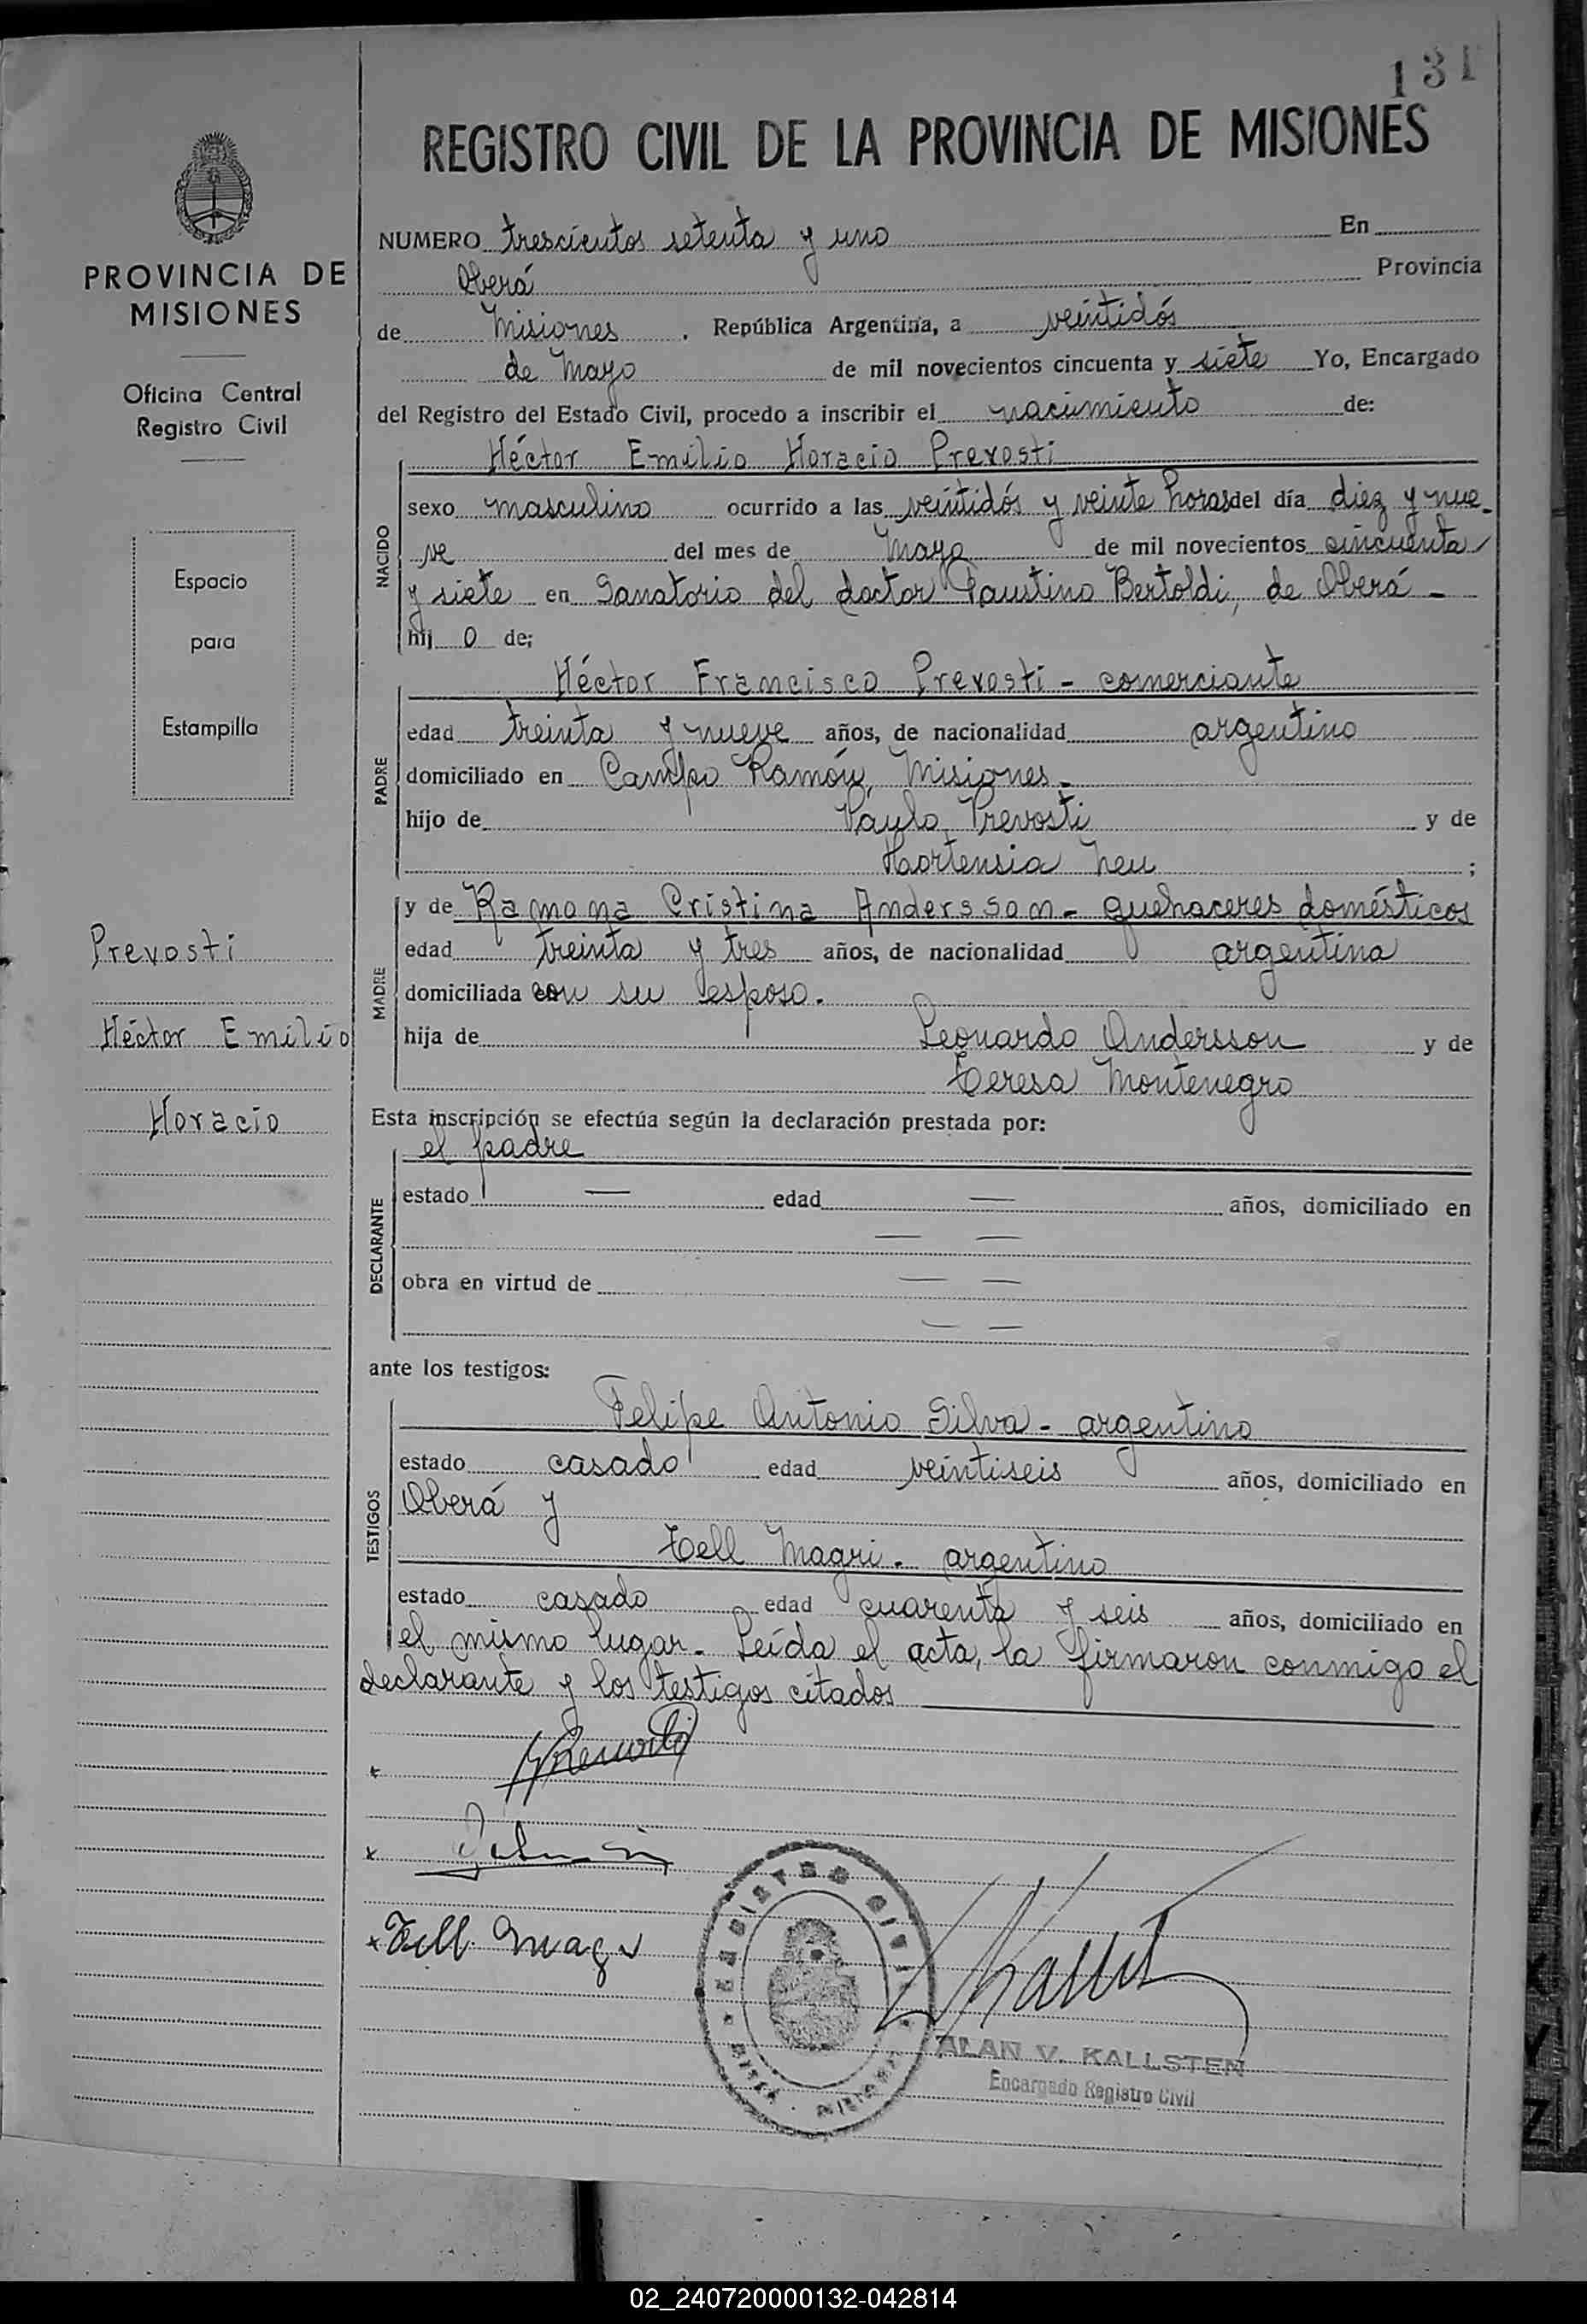 131
REGISTRO CIVIL DE LA PROVINCIA DE MISIONES
PROVINCIA DE
MISIONES
Oficina Central
Registro Civil
Espacio
para
Estampilla
Prevosti
Héctor Emilio
Horacio
NUMERO trescientos setenta y uno En
Oberá Provincia
de Misiones . República Argentina, a veintidós
de Mayo de mil novecientos cincuenta y siete Yo, Encargado
del Registro del Estado Civil, procedo a inscribir el nacimiento de:
NACIDO
Héctor Emilio Horacio Prevosti
sexo masculino ocurrido a las veintidós y veinte horas del día diez y nue-
ve del mes de Mayo de mil novecientos cincuenta
y siete en Sanatorio del doctor Faustino Bertoldi, de Oberá -
hij o de;
PADRE
Héctor Francisco Prevosti - comerciante
edad treinta y nueve años, de nacionalidad argentino
domiciliado en Campo Ramón, Misiones -
hijo de Paulo Prevosti y de
Hortensia Neu ;
MADRE
y de Ramona Cristina Andersson - quehaceres domésticos
edad treinta y tres años, de nacionalidad argentina
domiciliada con su esposo.
hija de Leonardo Andersson y de
Teresa Montenegro
Esta inscripción se efectúa según la declaración prestada por:
DECLARANTE
el padre
estado — edad — años, domiciliado en
— —
obra en virtud de — —
— —
ante los testigos:
TESTIGOS
Felipe Antonio Silva - argentino
estado casado edad veintiseis años, domiciliado en
Oberá y
Tell Magri - argentino
estado casado edad cuarenta y seis años, domiciliado en
el mismo lugar - Leída el acta, la firmaron conmigo el
declarante y los testigos citados
Tell Magri
REGISTRO CIVIL
ALAN V. KALLSTEN
Encargado Registro Civil
02_240720000132-042814